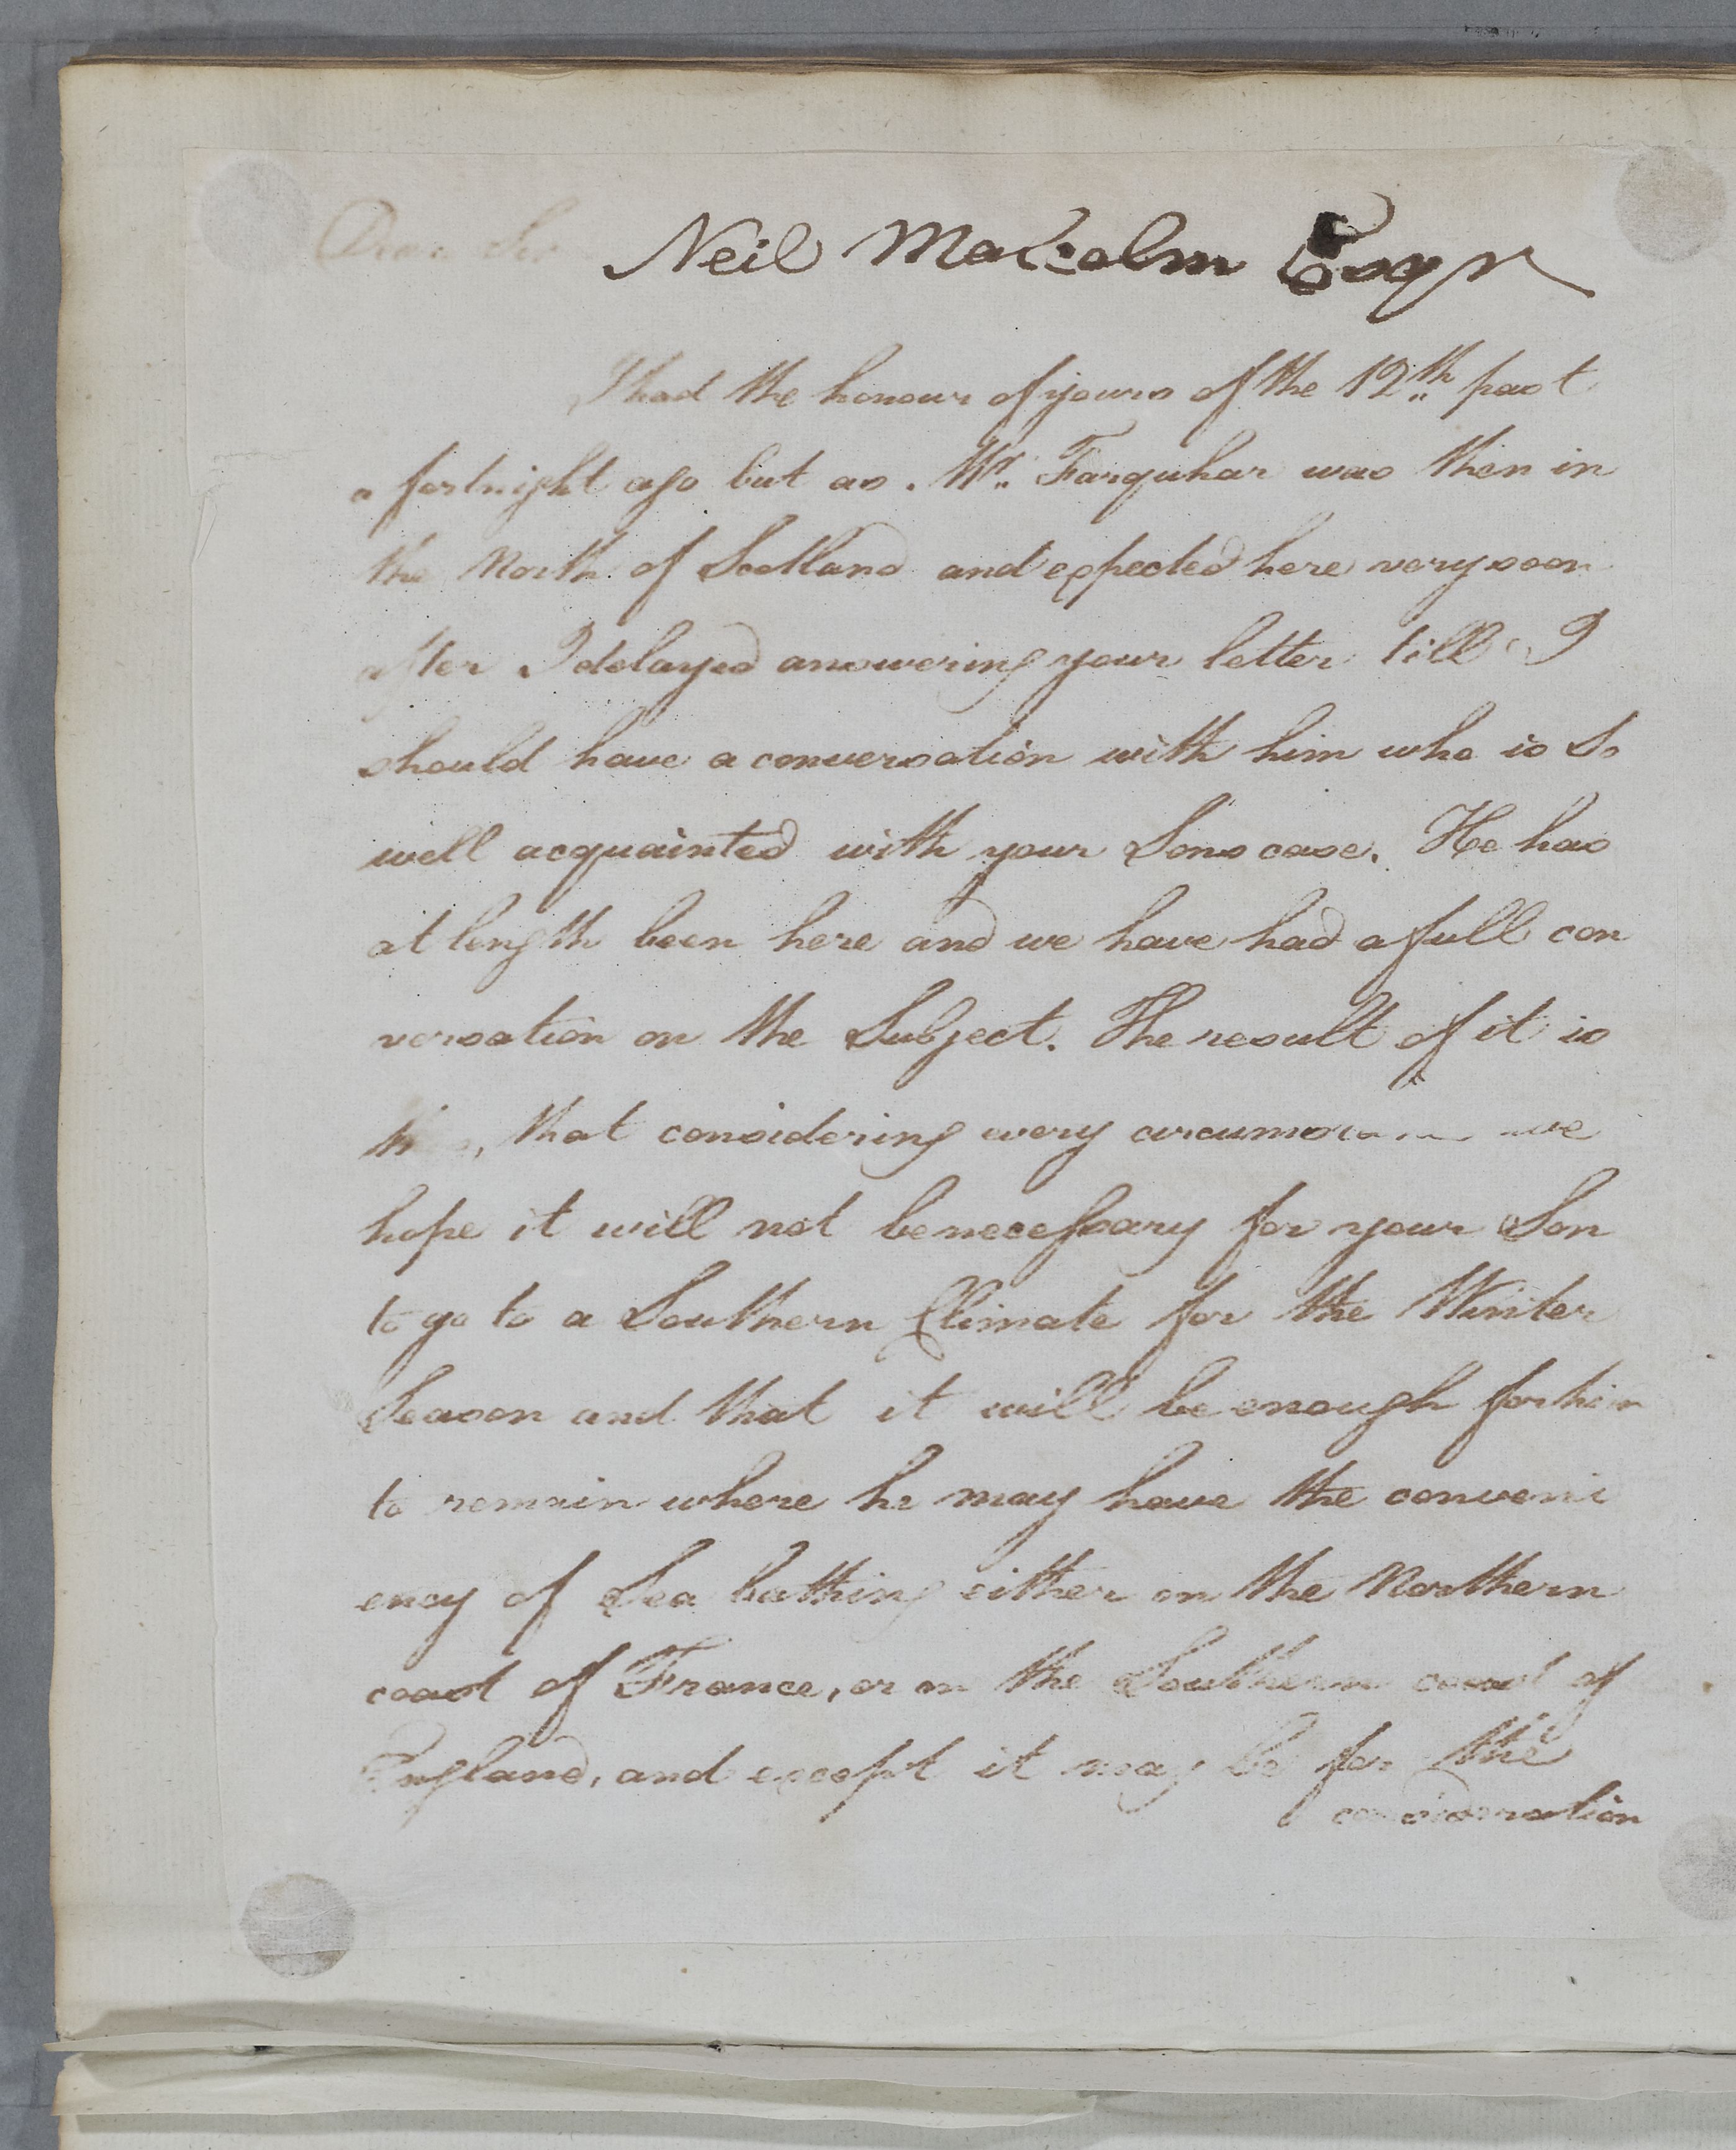 Dear Sir Neil Malcolm Esqr
I had the honour of yours of the 12th past
a fortnight ago but as Mr. Farquhar was then in
the North of Scotland and expected here very soon
after I delayed answering your letter till I
should have a conversation with him who is So
well acquainted with your Sons case. He has
at length been here and we have had a full con
versation on the Subject. The result of it is
this, that considering every we
hope it will not be necessary for your Son
to go to a Southern Climate for the Winter
Season and that it will be enough for him
to remain where he may have the conveni
ency of Sea bathing either on the Northern
coast of France, or on the Southern coast of
England, and except it may be for the
consideration